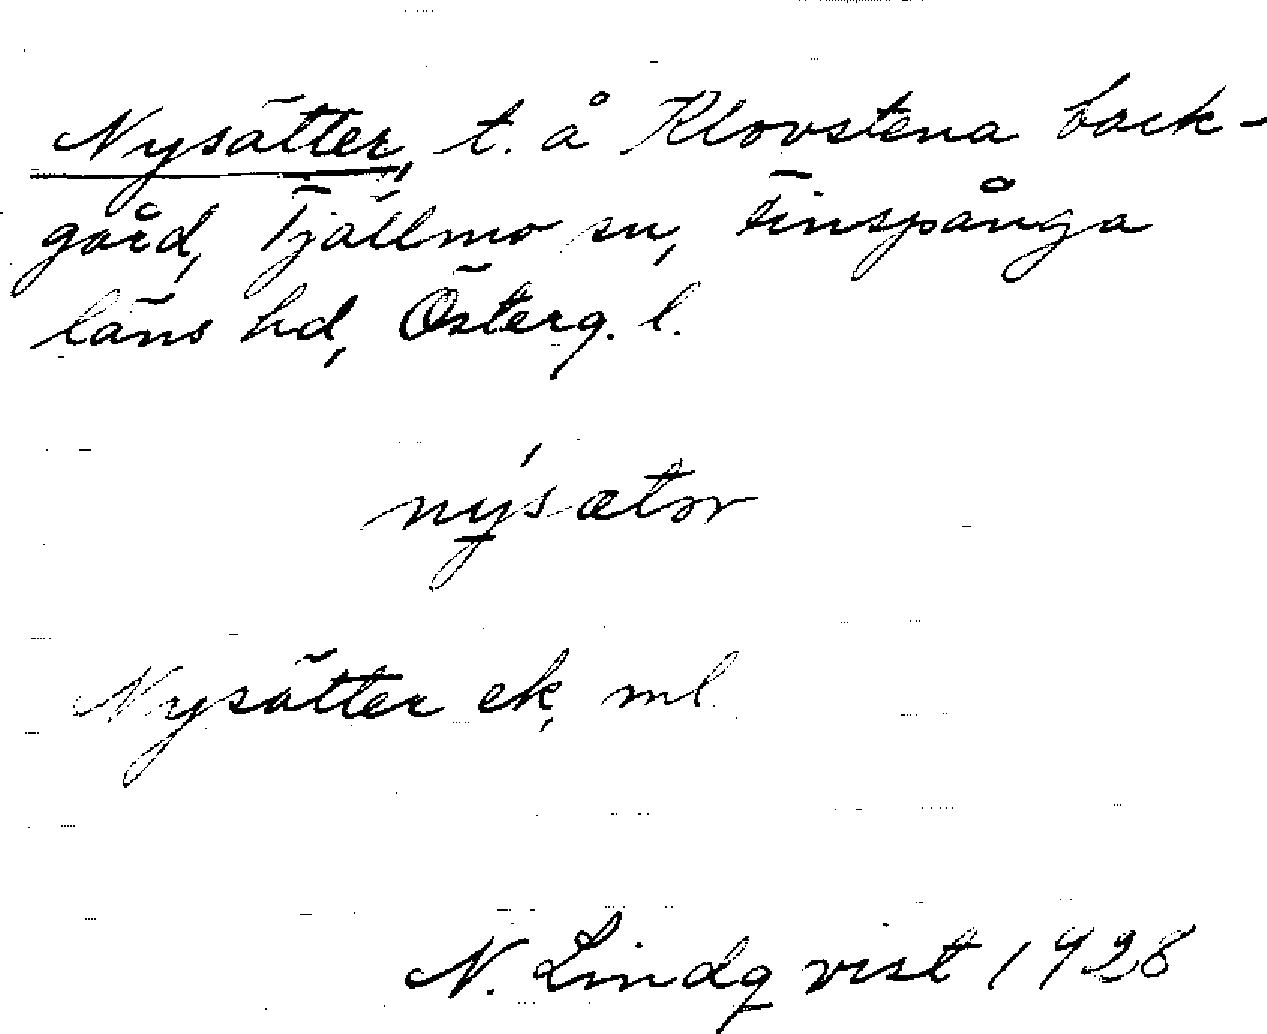 Nysätter, t. å Klovstena back-
gård, Tjällmo sn, Finspånga
läns hd, Österg. l.
Nysätter ek, ml.
N. Lindqvist 1928